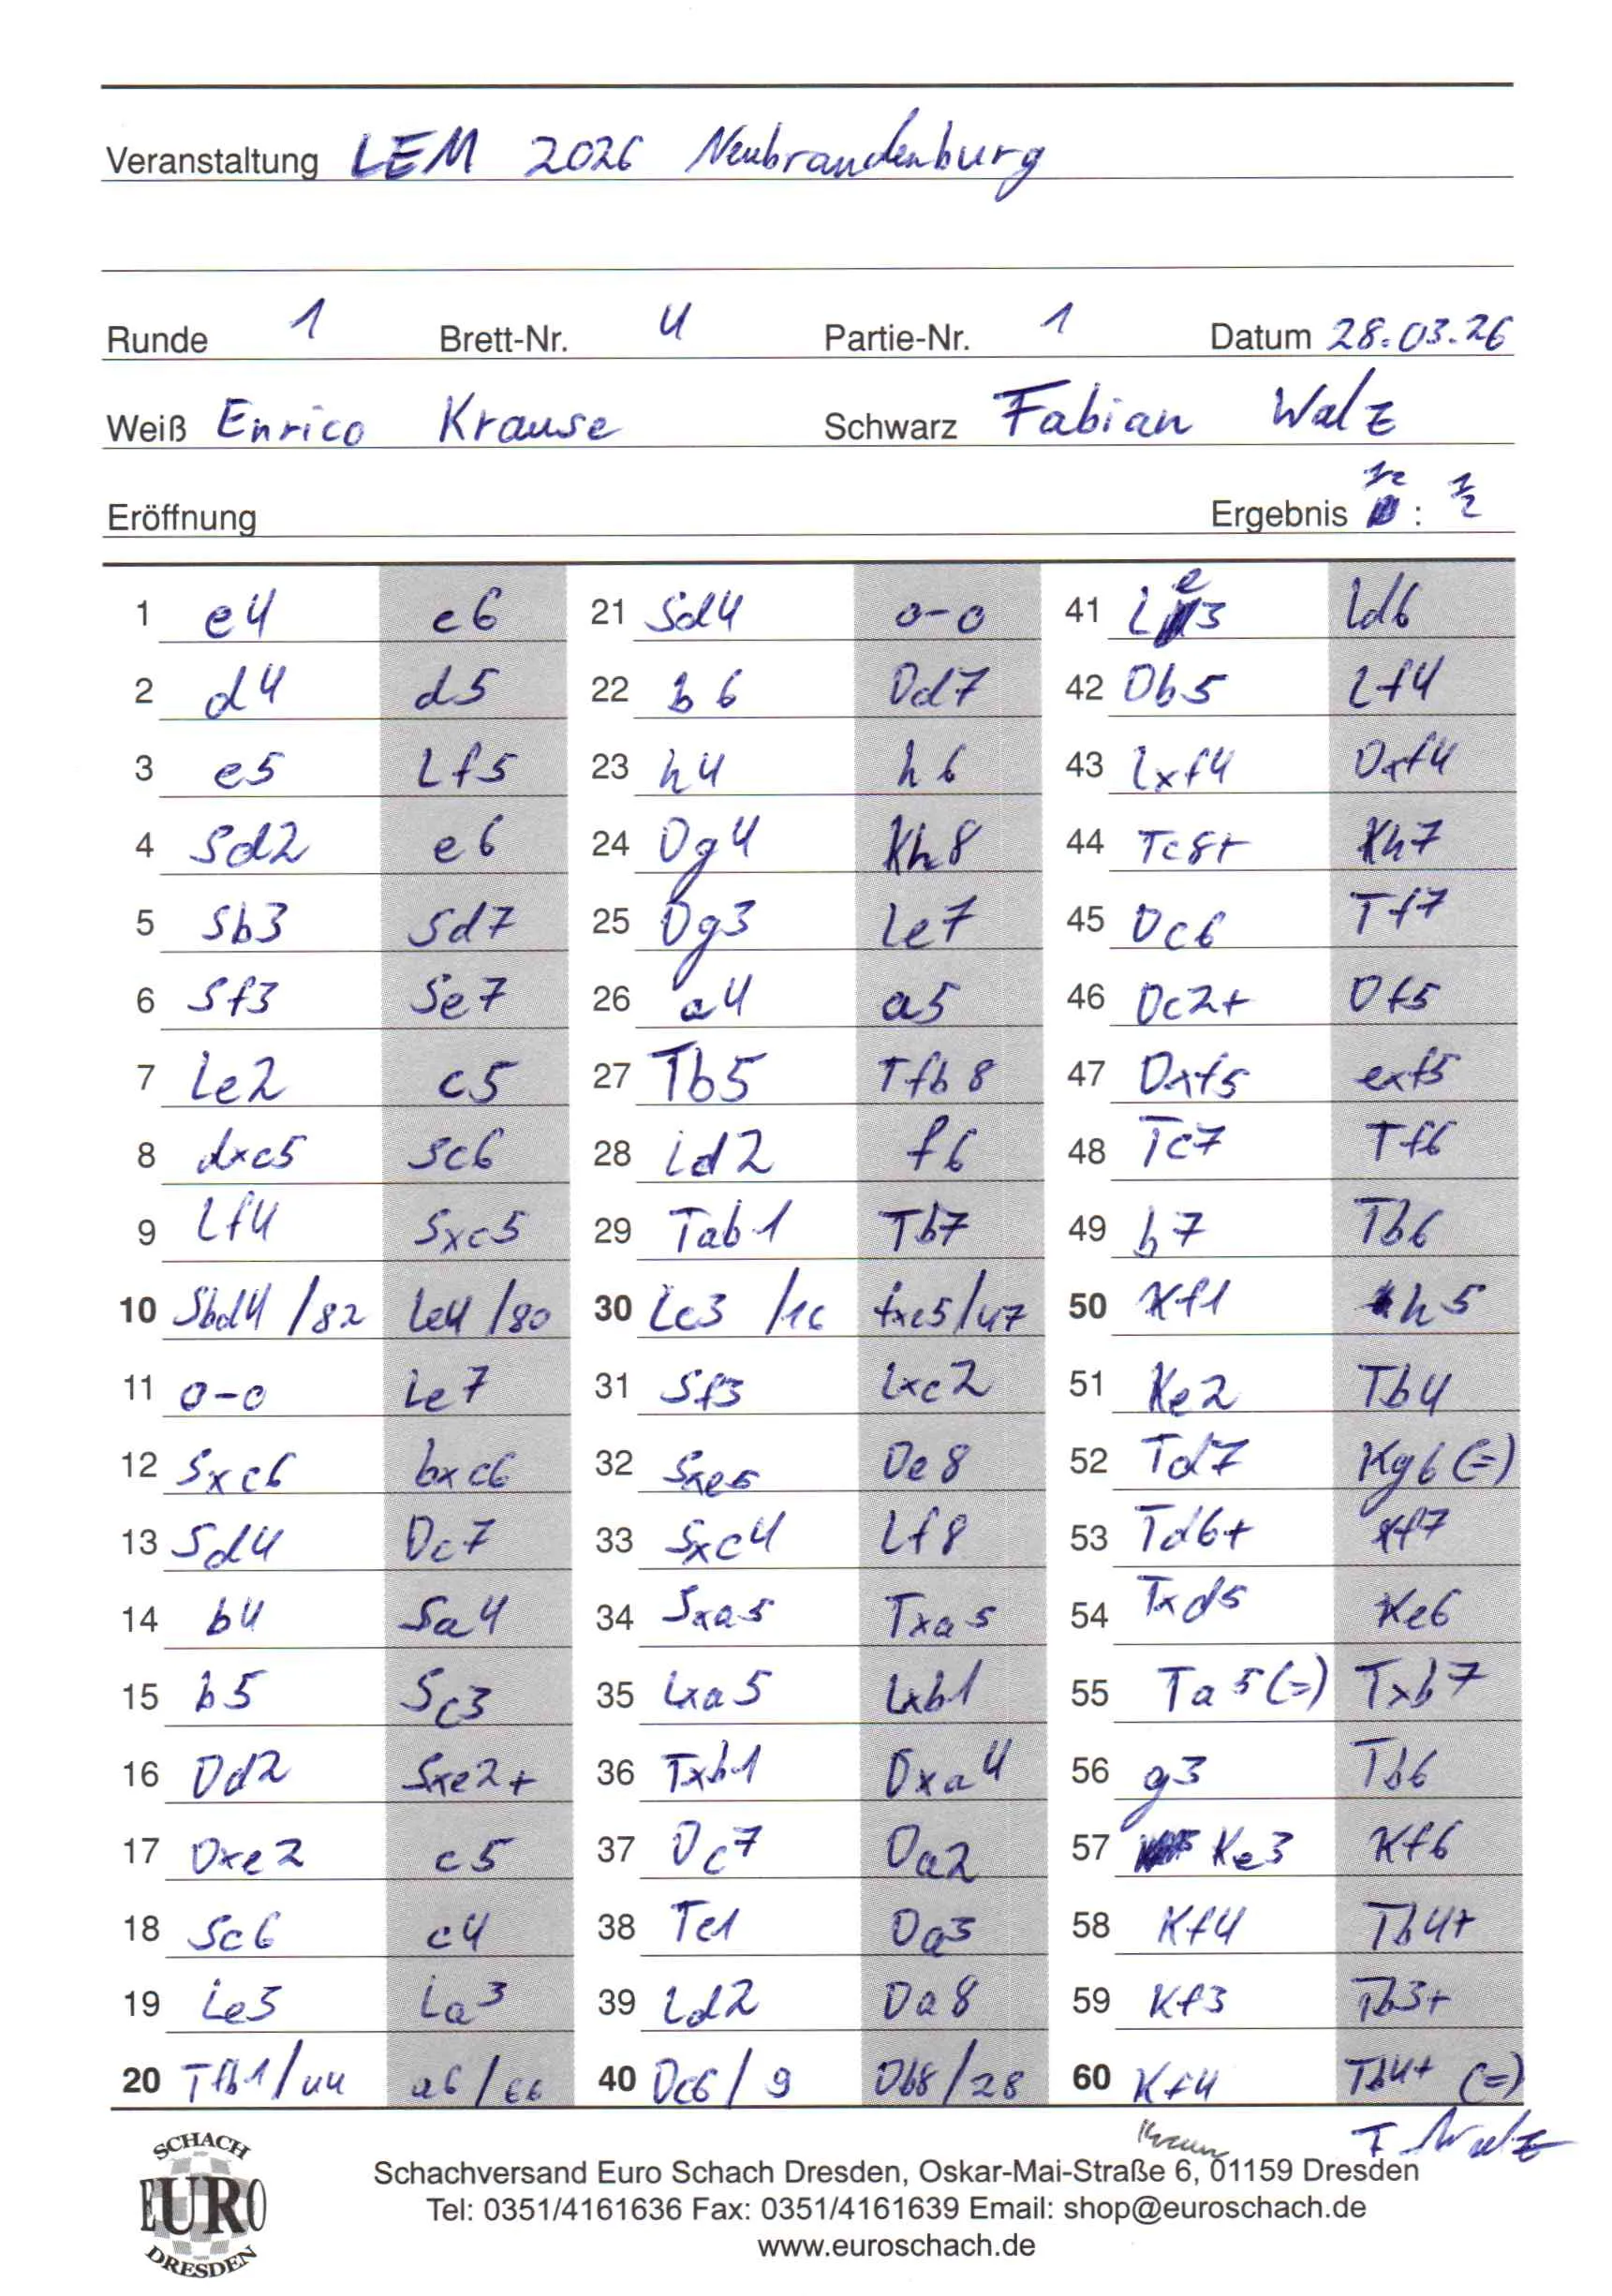 Veranstaltung LEM 2026 Neubrandenburg
Runde 1 Brett-Nr. 4 Partie-Nr. 1 Datum 28.03.26
Weiß Enrico Krause Schwarz Fabian Walz
Eröffnung Ergebnis ½ : ½
1 e4 c6 21 Sd4 0-0 41 Le3 Ld6
2 d4 d5 22 b6 Dd7 42 Db5 Lf4
3 e5 Lf5 23 h4 h6 43 Lxf4 Dxf4
4 Sd2 e6 24 Dg4 Kh8 44 Tc8+ Kh7
5 Sb3 Sd7 25 Dg3 Le7 45 Dc6 Tf7
6 Sf3 Se7 26 a4 a5 46 Dc2+ Df5
7 Le2 c5 27 Tb5 Tfb8 47 Dxf5 exf5
8 dxc5 Sc6 28 Ld2 f6 48 Tc7 Tf6
9 Lf4 Sxc5 29 Tab1 Tb7 49 b7 Tb6
10 Sbd4 /82 Le4 /80 30 Lc3 /16 fxe5/47 50 Kf1 h5
11 0-0 Le7 31 Sf3 Lxc2 51 Ke2 Tb4
12 Sxc6 bxc6 32 Sxe5 De8 52 Td7 Kg6 (=)
13 Sd4 Dc7 33 Sxc4 Lf8 53 Td6+ Kf7
14 b4 Sa4 34 Sxa5 Txa5 54 Txd5 Ke6
15 b5 Sc3 35 Lxa5 Lxb1 55 Ta5(=) Txb7
16 Dd2 Sxe2+ 36 Txb1 Dxa4 56 g3 Tb6
17 Dxe2 c5 37 Dc7 Da2 57 Ke3 Kf6
18 Sc6 c4 38 Tc1 Da3 58 Kf4 Tb4+
19 Le3 La3 39 Ld2 Da8 59 Kf3 Tb3+
20 Tfb1/44 a6/66 40 Dc6/9 Db8/28 60 Kf4 Tb4+ (=)
Krause F. Walz
SCHACH
EURO
DRESDEN
Schachversand Euro Schach Dresden, Oskar-Mai-Straße 6, 01159 Dresden
Tel: 0351/4161636 Fax: 0351/4161639 Email: shop@euroschach.de
www.euroschach.de